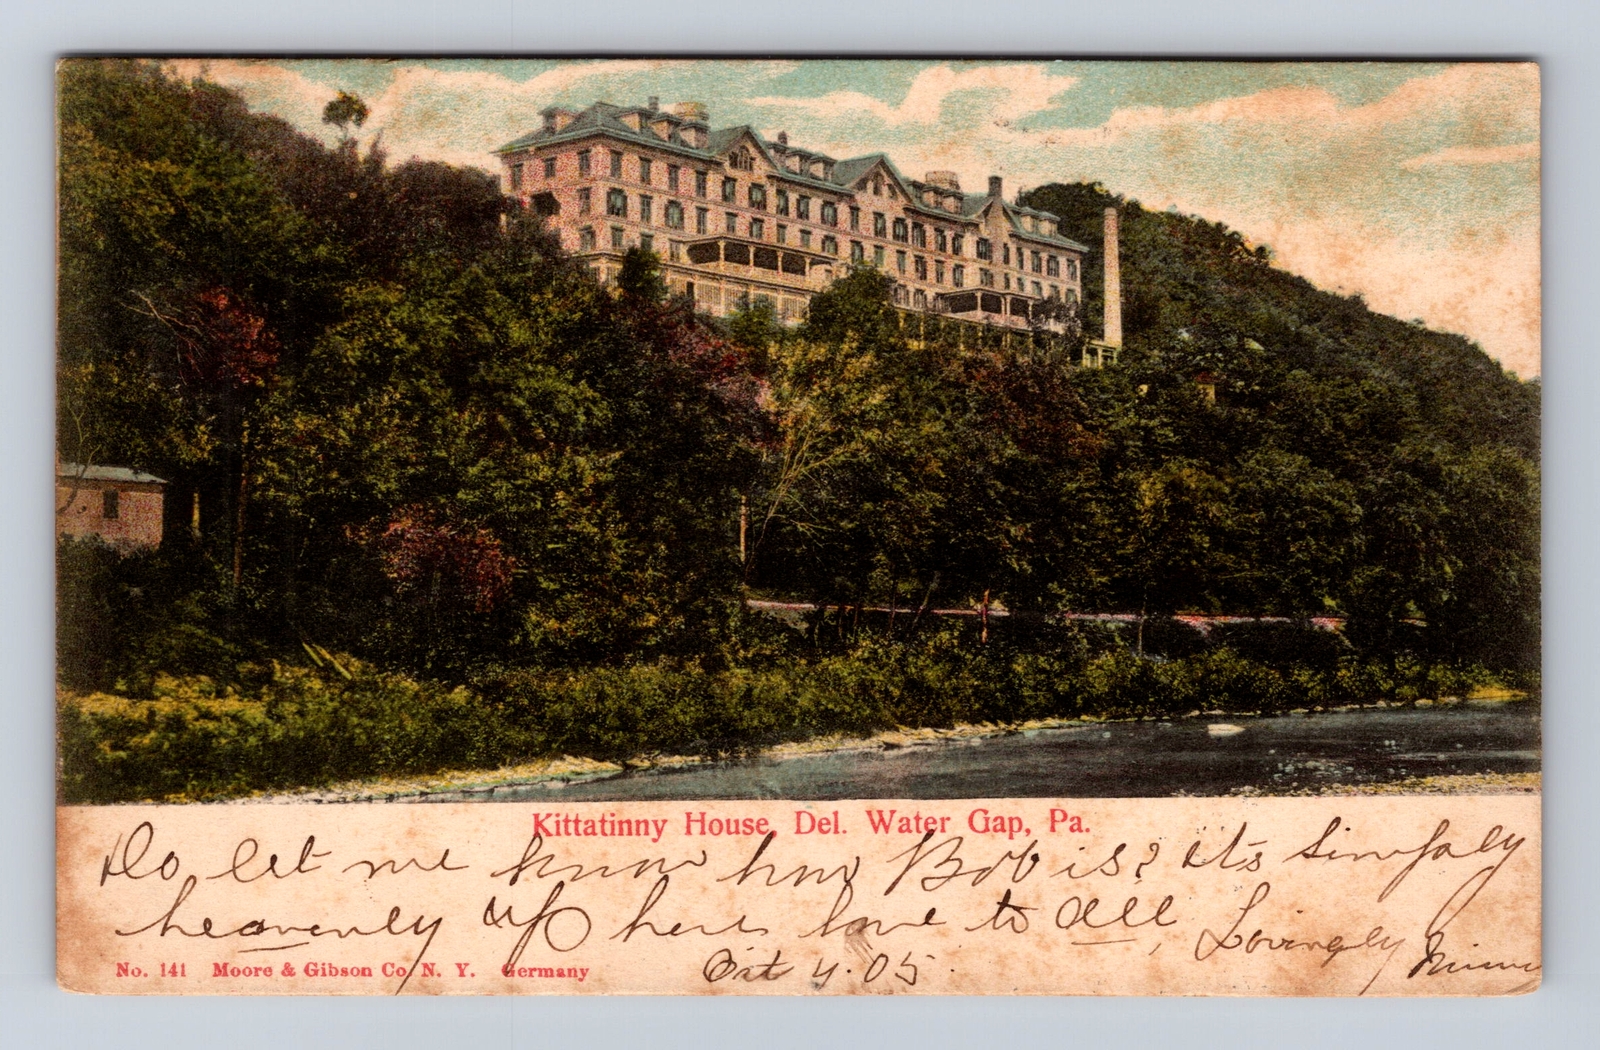 Kittatinny House, Del. Water Gap, Pa.
Do let me know how Bob is? its simpaly
heavenly up here love to all, Lovingly
No. 141 Moore & Gibson Co. N. Y. Germany Oct 4. 05.